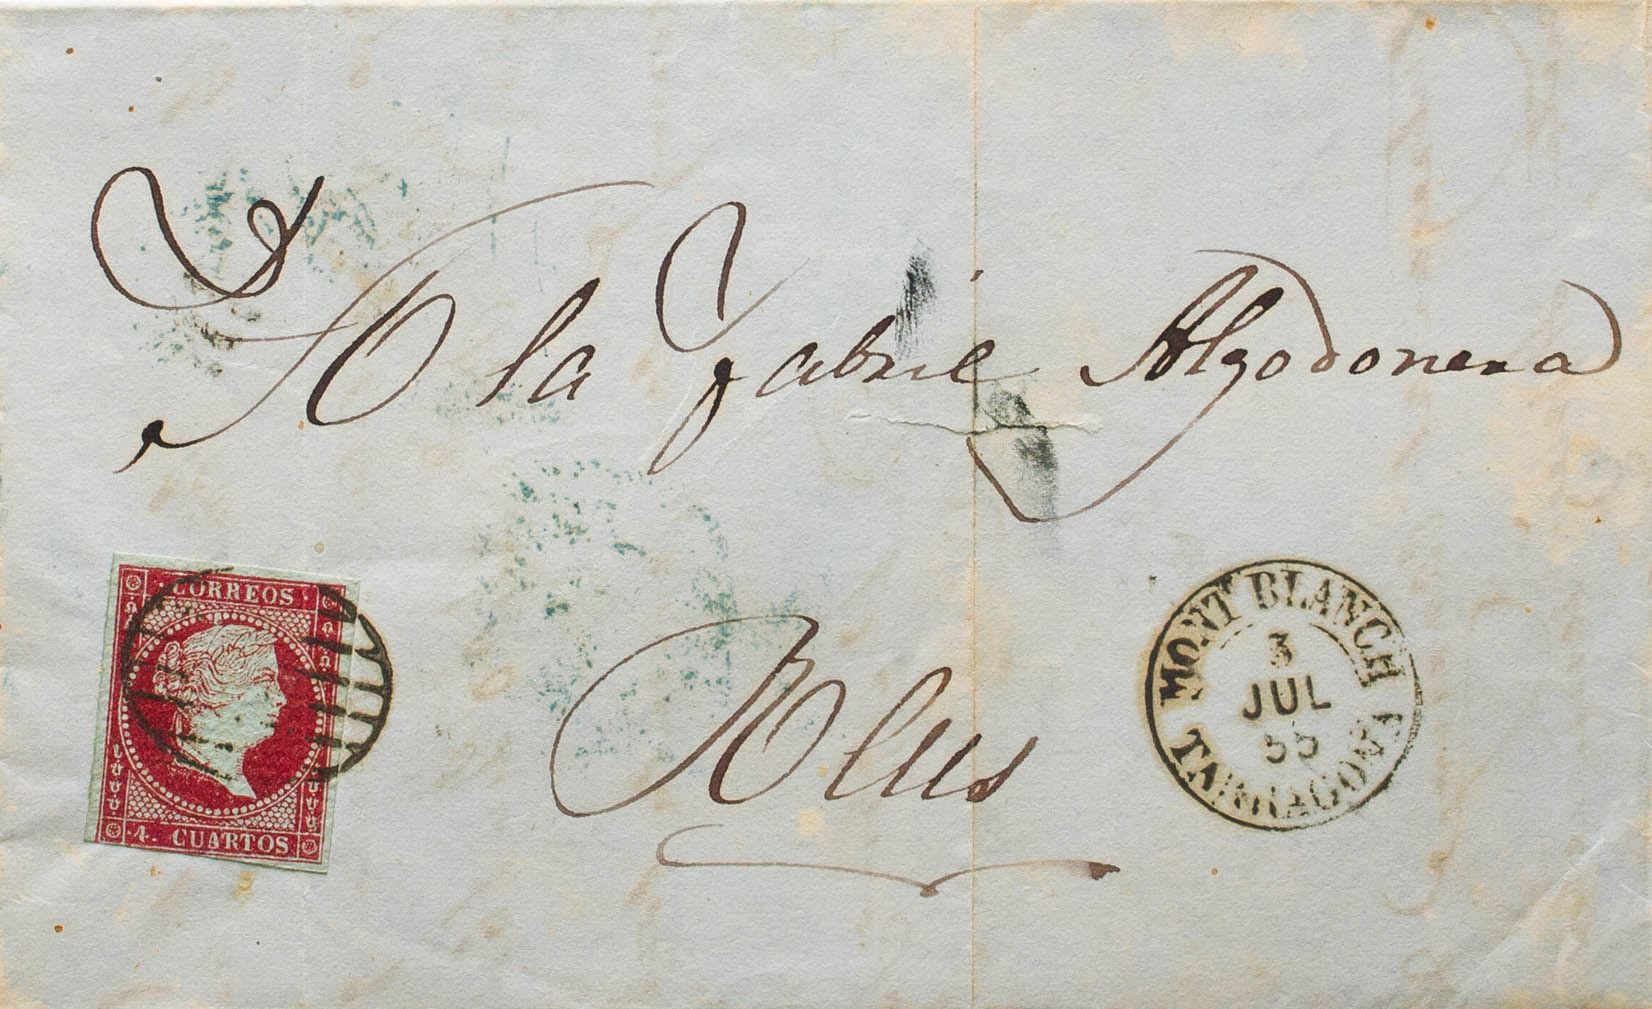 A la Fabril Algodonera
CORREOS
4. CUARTOS
Reus
MONTBLANCH
3
JUL
55
TARRAGONA